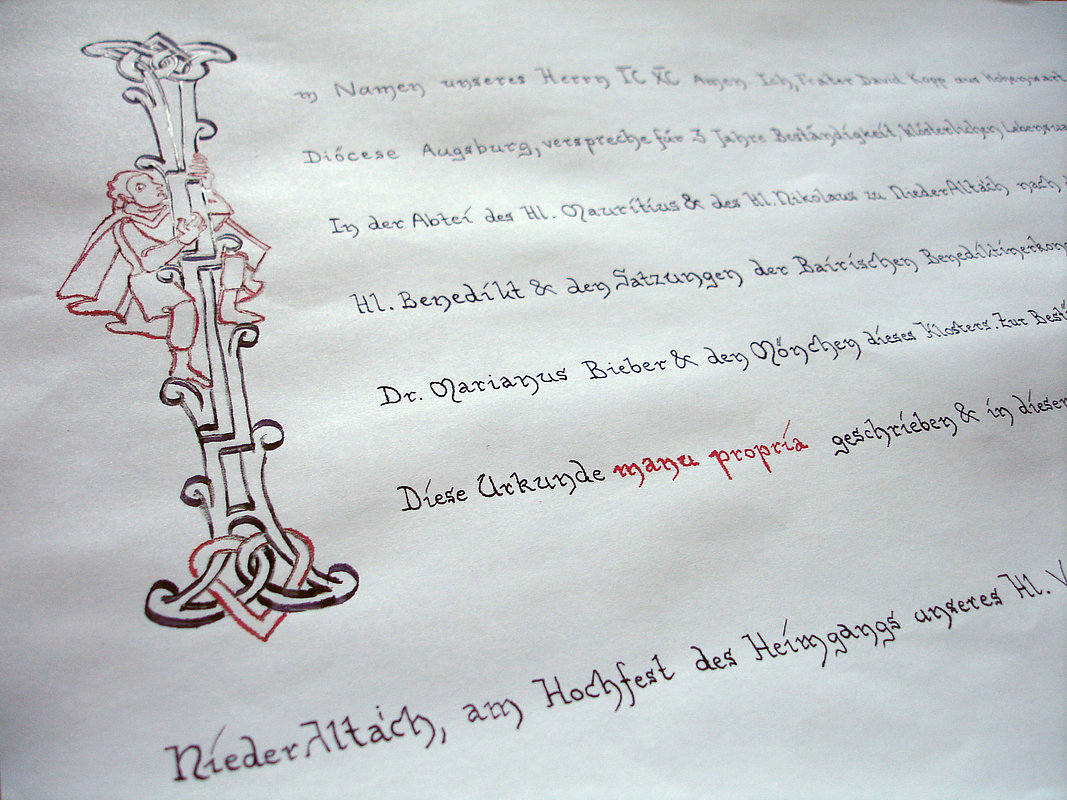 Im Namen unseres Herrn IC XC Amen. Ich, Frater David Kopp aus Hohenwart
Diöcese Augsburg, verspreche für 3 Jahre Beständigkeit klösterlichen
In der Abtei des Hl. Mauritius & des Hl. Nikolaus zu NiederAltaich nach
Hl. Benedikt & den Satzungen der Bairischen
Dr. Marianus Bieber & den Mönchen dieses Klosters. Zur
Diese Urkunde manu propria geschrieben & in dieser
NiederAltaich, am Hochfest des Heimgangs unseres Hl. V